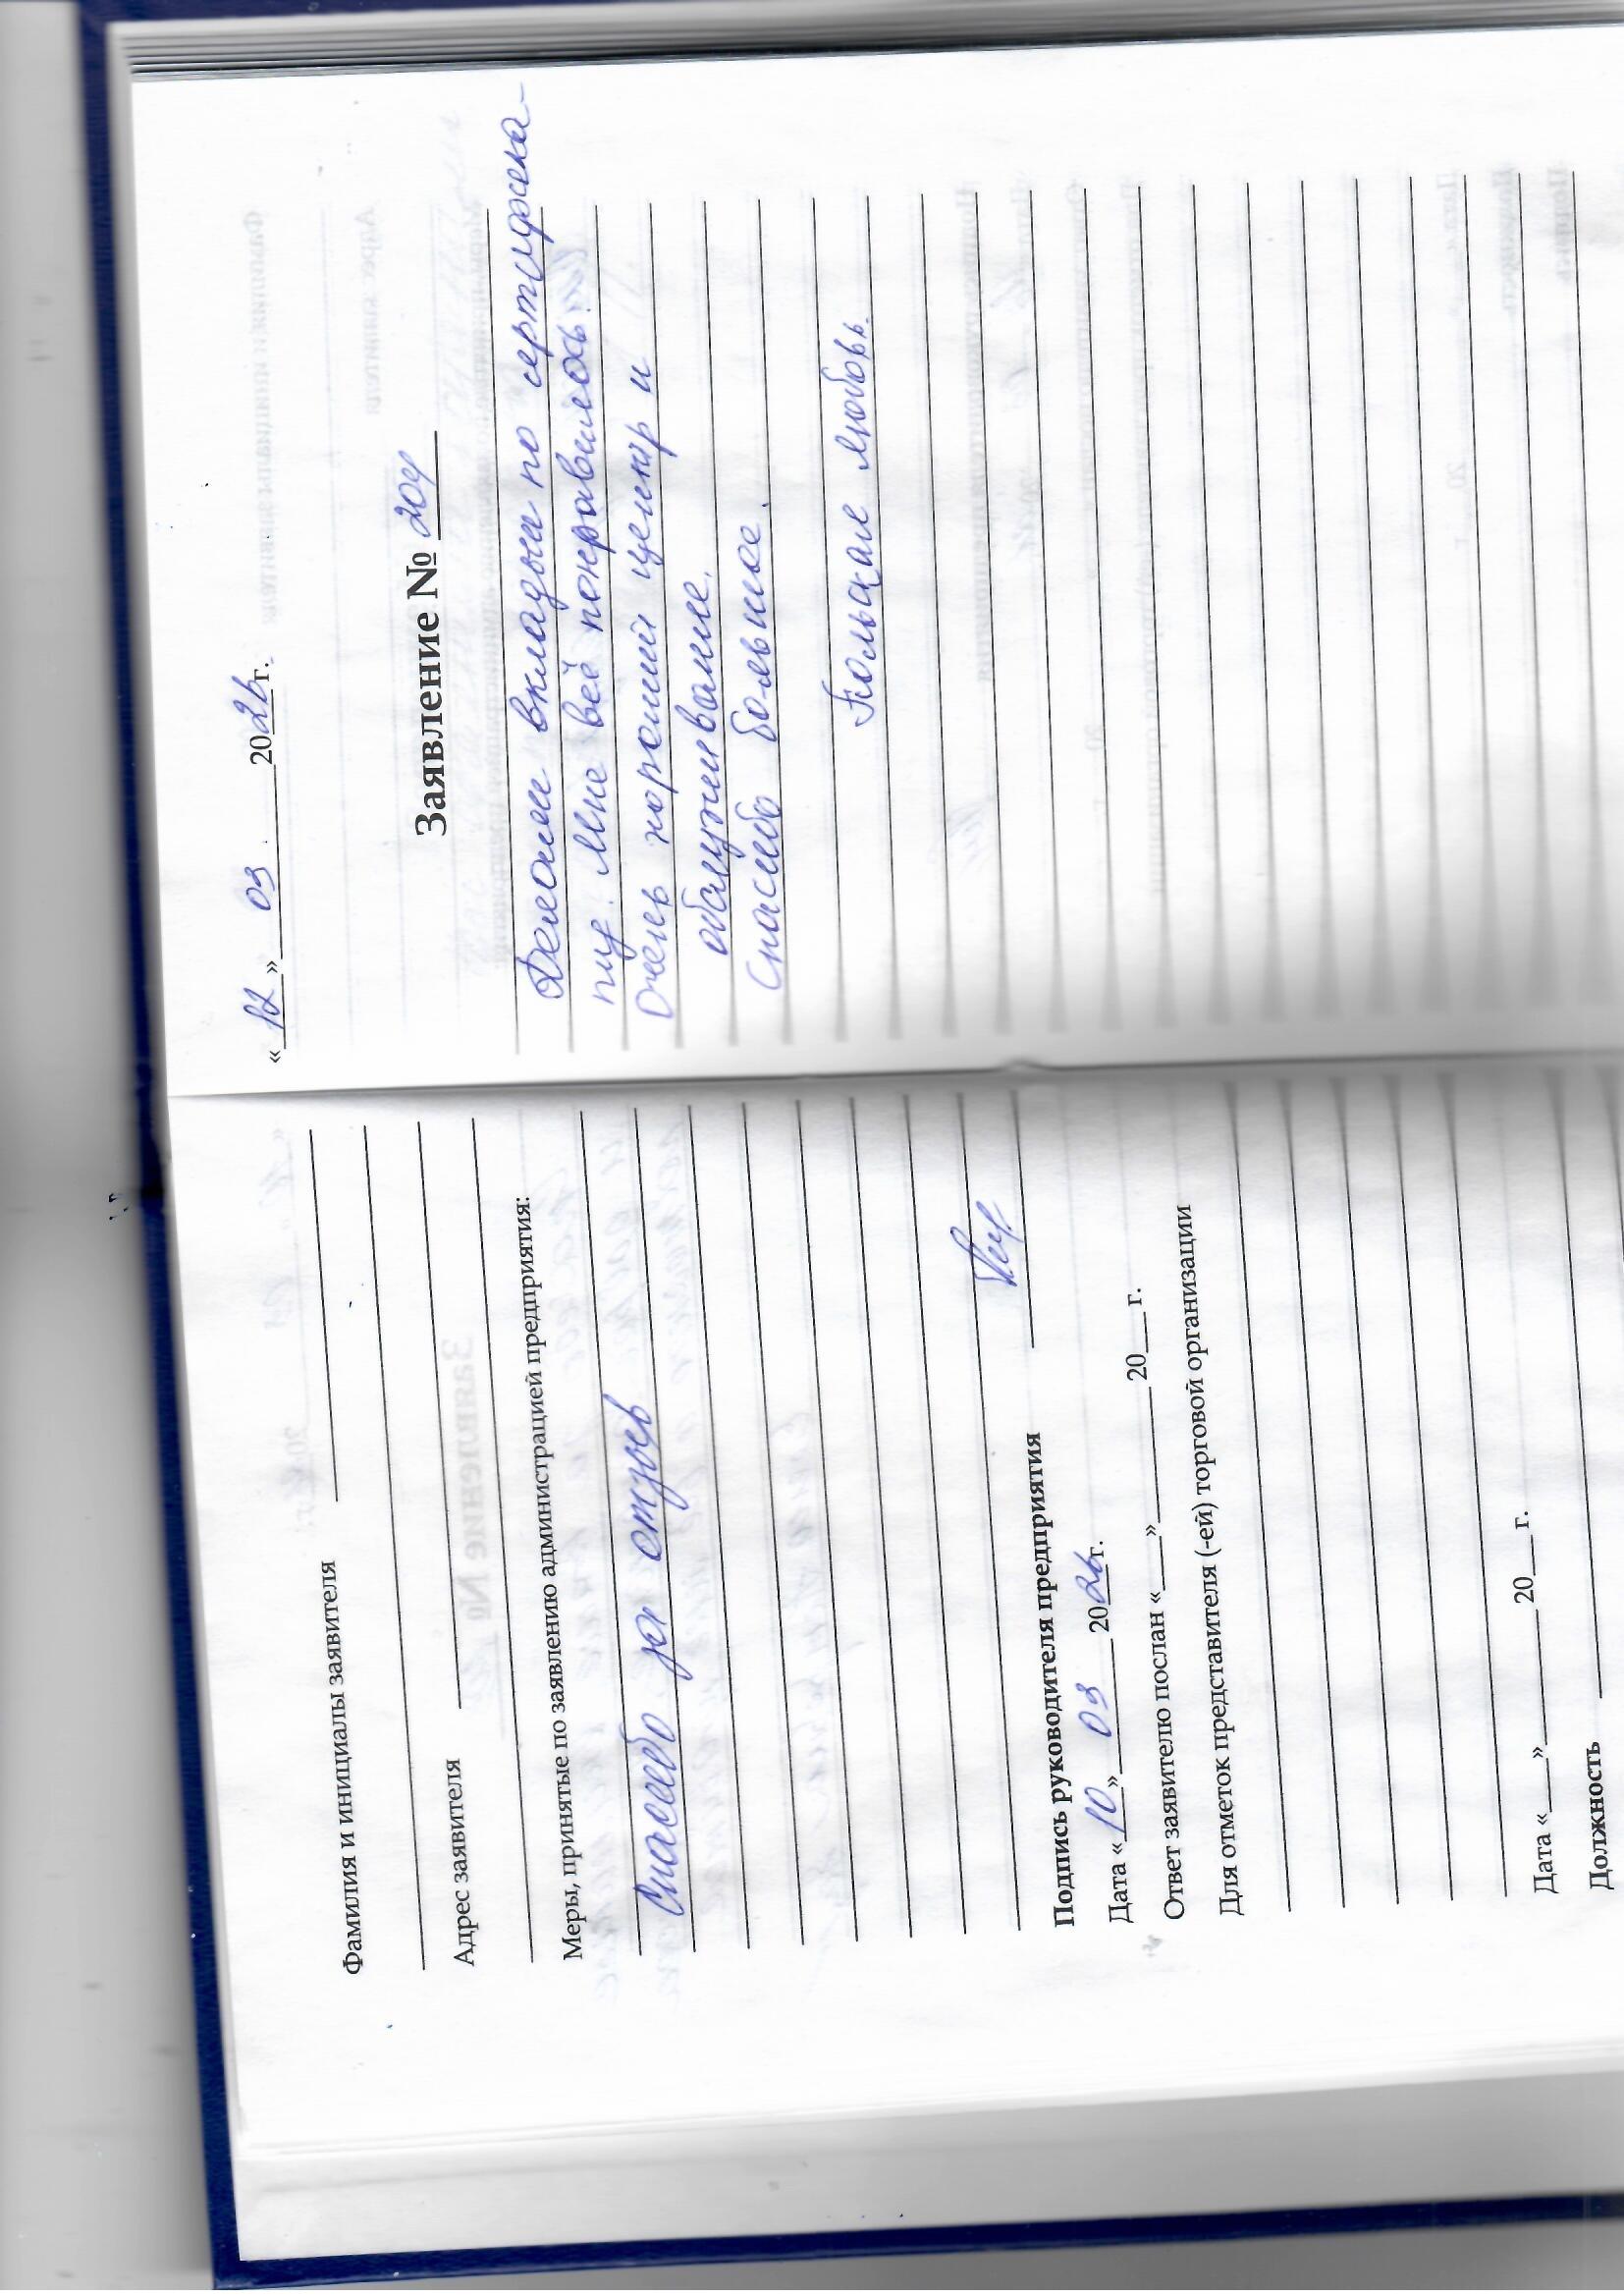 Фамилия и инициалы заявителя
Адрес заявителя
Меры, принятые по заявлению администрацией предприятия:
Спасибо за отзыв
Подпись руководителя предприятия
Дата «10» 03 2026 г.
Ответ заявителю послан «___»_______ 20__ г.
Для отметок представителя (-ей) торговой организации
Дата «___»_______ 20__ г.
Должность
«12» 03 2026 г.
Заявление № 204
Делали вкладыши по сертифика-
ту. Мне всё понравилось!
Очень хороший центр и
обслуживание.
Спасибо большое.
Любовь.